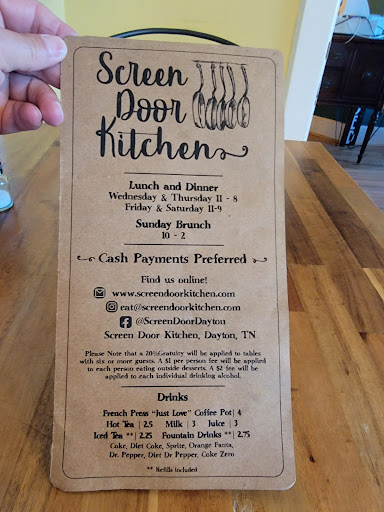 Screen
Door
Kitchen
Lunch and Dinner
Wednesday & Thursday 11 - 8
Friday & Saturday 11-9
Sunday Brunch
10 - 2
Cash Payments Preferred
Find us online!
www.screendoorkitchen.com
eat@screendoorkitchen.com
@ScreenDoorDayton
Screen Door Kitchen, Dayton, TN
Please Note that a 20%Gratuity will be applied to tables
with six or more guests. A $1 per person fee will be applied
to each person eating outside desserts. A $2 fee will be
applied to each individual drinking alcohol.
Drinks
French Press "Just Love" Coffee Pot| 4
Hot Tea | 2.5 Milk | 3 Juice | 3
Iced Tea **| 2.25 Fountain Drinks **| 2.75
Coke, Diet Coke, Sprite, Orange Fanta,
Dr. Pepper, Diet Dr Pepper, Coke Zero
** Refills Included